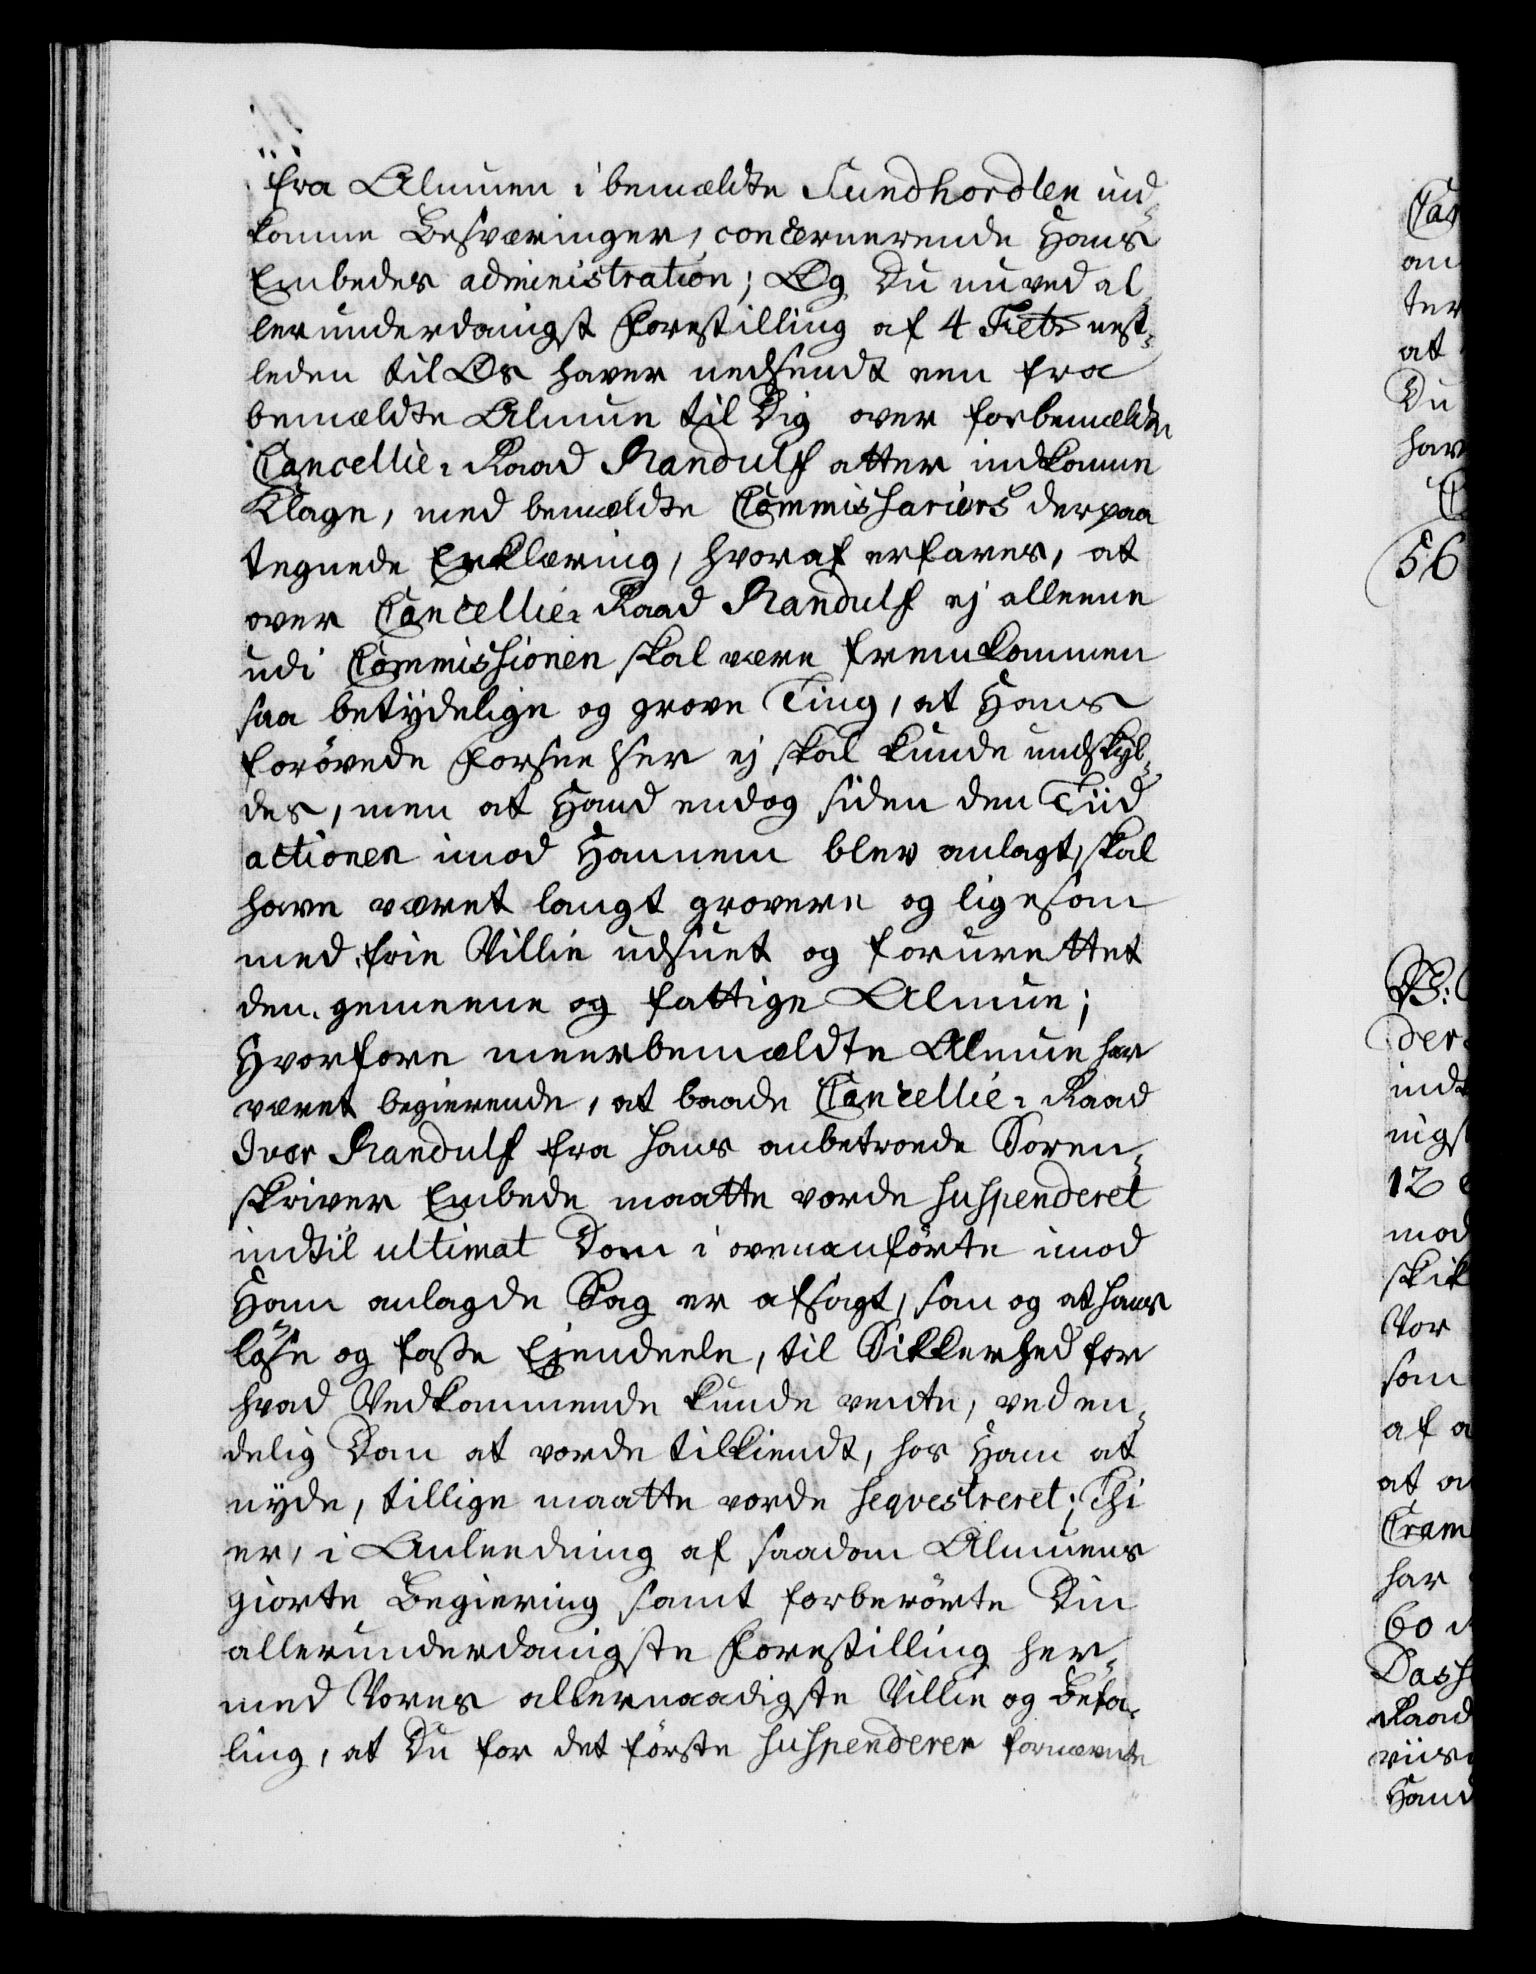 fra Almuen i bemældte Sundhordlen ind-
komne Besværinger, concernerende Hans
Embedes administration; Og Du nu ved al-
lerunderdanigst Forestilling af 4 Febr: nest-
leden til Os haver nedsendt een fra
bemældte Almue til Dig over forbemældte
Cancellie-Raad Randulf atter indkomne
Klage, med bemældte Commissariers derpaa
tegnede Erklæring, hvoraf erfares, at
over Cancellie-Raad Randulf ej alleene
udi Commissionen skal være fremkommen
saa betÿdelige og grove Ting, at Hans
forövede Forseelser ej skal kunde undskÿl-
des, men at Hand endog siden den Tiid
actionen imod Hannem blev anlagt, skal
have været langt grovere og ligesom
med frie Villie udsuet og forurettet
den gemeene og fattige Almue;
Hvorfore meerbemældte Almue har
været begierende, at baade Cancellie-Raad
Iver Randulf fra hans anbetroede Soren-
skriver Embede maatte vorde suspenderet
indtil ultimat Dom i ovenanförte imod
Ham anlagde Sag er afsagt, som og at hans
löse og faste Ejendeele, til Sikkerhed for
hvad Vedkommende kunde vente, ved en-
delig Dom at vorde tilkiendt, hos Ham at
nÿde, tillige maatte vorde seqvestreret; Thi
er, i Anleedning af saadan Almuens
giorte Begiering samt forberörte Din
allerunderdanigste Forestilling her-
med Vores allernaadigste Villie og Befa-
ling, at Du for det förste suspenderer fornævnte